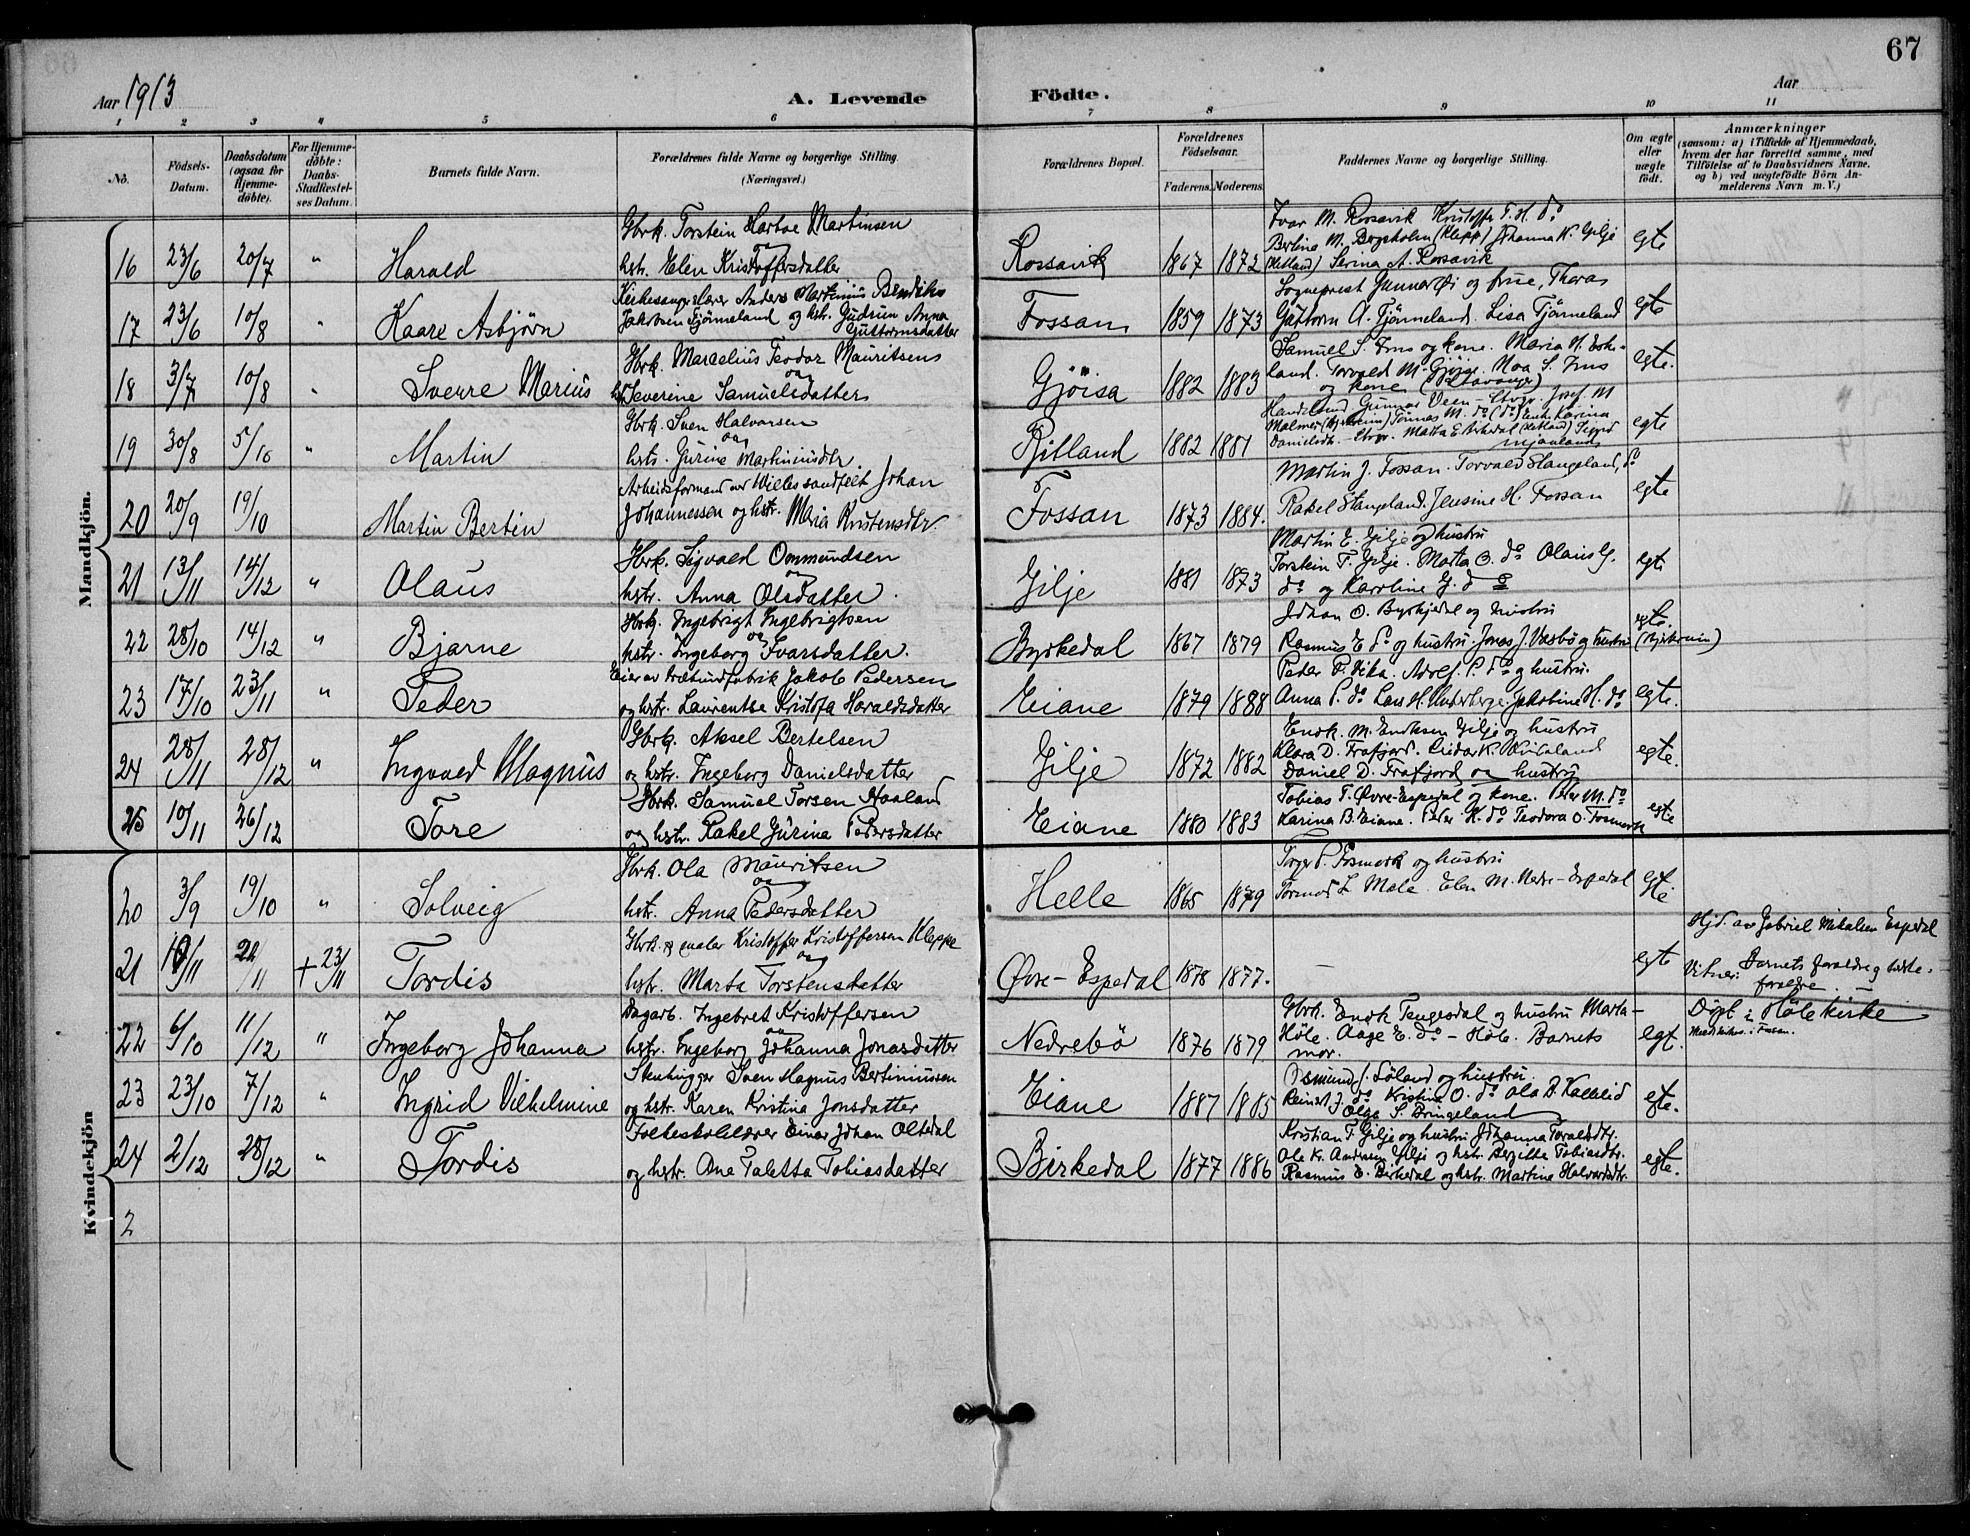 67
Aar 1913
A. Levende
Födte.
Aar
1 2 3 4 5 6 7 8 9 10 11
No.
Födsels-Datum.
Daabsdatum (ogsaa for Hjemme-døbte).
For Hjemme-døbte: Daabs-Stadfæstel-ses Datum.
Barnets fulde Navn.
Forældrenes fulde Navne og borgerlige Stilling. (Næringsvei.)
Forældrenes Bopæl.
Forældrenes Födselsaar.
Faderens. Moderens.
Faddernes Navne og borgerlige Stilling.
Om ægte eller uægte födt.
Anmærkninger
(saasom: a) i Tilfælde af Hjemmedaab, hvem der har forrettet samme, med Tilföielse af to Daabsvidners Navne, og b) ved uægtefödte Börn An-melderens Navn m. V.)
Mandkjön.
16 23/6 20/7 " Harald
Gbrk. Torstein Hartve Martinsen
og
hstr. Elen Kristoffersdatter
Rossavik 1867 1872
Ivar M. Rossavik Kristoffer T. H. do
Berlina M. Bergsholm (Klepp) Johanna K. Gilje
(Hetland) Serina A. Rossavik
egte
17 23/6 10/8 " Kaare Asbjørn
Kirkesanger, lærer Anders Martinius Bendik
Jakobsen Tjønneland og hstr. Gudrun Anna
Guttormsdatter
Fossan 1859 1873
Sogneprest Gunnar Øi og frue, Thoras
Guttorm A. Tjønneland. Lisa Tjønneland
egte
18 3/7 10/8 " Sverre Marius
Gbrk. Marcelius Teodor Mauritsens
og
hstr. Severine Samuelsdatters
Gjöisa 1882 1883
Samuel S. Frøs og kone. Maria H. Eske-
land. Torvald M. Gjöise. Moa S. Frøs
og kone (Stavanger)
egte.
19 30/8 5/10 " Martin
Gbrk. Sven Halvorsen
og
hstr. Gurine Martiniusdtr
Ritland 1882 1881
Handelsmd Gunnar Veen - Stvgr. Josef M
egte
20 20/9 19/10 Martin Bertin
Arbeidsformand ved Villes sandfelt Johan
Johannessen og hstr. Maria Kristensdtr
Fossan 1873 1884.
Martin J. Fossan. Torvald Stangeland, do
Rakel Stangeland. Jensine H. Fossan
egte
21 13/11 14/12 " Olaus
Gbrk. Sigvald Ommundsen
og
hstr. Anna Olsdatter.
Gilje 1881 1873
Martin E. Gilje og hustru
Torstein T. Gilje. Marta O. do Olaus G.
do og Karoline G. do
egte
22 28/10 14/12 " Bjarne
Gbrk. Ingebrigt Ingebrigtsen
og
hstr. Ingeborg Ivarsdatter.
Byrkedal 1867 1879
Johan O. Byrkjedal og hustru
Rasmus E. do og hustru. Jonas J. Vasbø og hustru (Bjerkreim)
egte.
23 17/10 23/11 " Peder
Eier av træuldfabrik Jakob Pedersen
og hstr. Laurentse Kristofa Haraldsdatter
Eiane 1879 1888
Peder P. Vika. Adolf P. do og hustru.
Anna P. do Lars H. Underberge. Jakobine H. do
egte.
24 28/11 28/12 " Ingvald Magnus
Gbrk. Aksel Bertelsen
og hstr. Ingeborg Danielsdatter
Gilje 1872 1882
Enok. M. Eriksen Gilje og hustru
Klara D. Frafjord.
Daniel D. Frafjord og hustru
egte.
25 10/11 26/12 Tore
Gbrk. Samuel Torsen Haaland
og hstr. Rakel Gurina Pedersdatter
Eiane 1880 1883
Tobias T. Øvre-Espedal og kone. Peter M. do
Karina B. Eiane. Peder K. do Teodora O. Fosmark
egte
Kvindekjön
20 3/9 19/10 " Solveig
Gbrk. Ola Mauritsen
og
hstr. Anna Pedersdatter
Helle 1865 1879
Torger P. Fosmork og hustru
Tormod L. Mæle. Elen M. Nedre-Espedal
egte.
21 10/11 22/11 + 23/11 Tordis
Gbrk. og maler Kristoffer Kristoffersen Kleppe
og
hstr. Marta Torstensdatter
Øvre-Espedal 1878 1877. -
egte
Hjd. av Gabriel Mikalsen Espedal
Vitner: Barnets forældre og beste-
forældre.
22 6/10 11/12 " Ingeborg Johanna
Dagarb. Ingebret Kristoffersen
og
hstr. Ingeborg Johanna Jonasdatter
Nedrebö 1876 1879
Gbrk. Enok Tengesdal og hustru Marta -
Höle. Aage E. do - Höle. Barnets
mor.
egt.
Döpt i Höle kirke
23 23/10 7/12 " Ingrid Vilhelmine
Stenhugger Sven Magnus Bertiniussen
og hstr. Karen Kristina Jonsdatter
Eiane 1887 1885
Osmund J. Löland og hustru.
Reinert J. do Kristina O. do Ola D. Kalleid
Olga S. Bringeland
egte.
24 2/12 28/12 " Tordis
Folkeskolelærer Einar Johan Oltedal
og hstr. Ane Taletta Tobiasdatter
Birkedal 1877 1886
Kristian T. Gilje og hustru Johanna Toraldsdtr.
Ole Kr. Andersen Gilje og hstr. Bergitte Tobiasdtr.
Rasmus E. Birkedal og hstr. Martine Halvorsdtr.
egte.
2